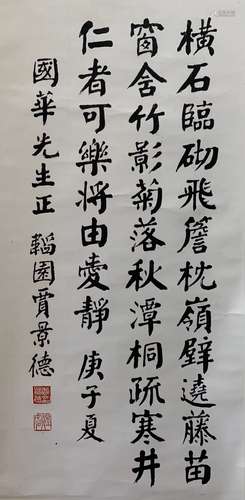 橫石臨砌飛簷枕嶺壁遶藤苗
窗舍竹影菊落秋潭桐疏寒井
仁者可樂將由愛靜 庚子夏
國華先生正 韜園賈景德